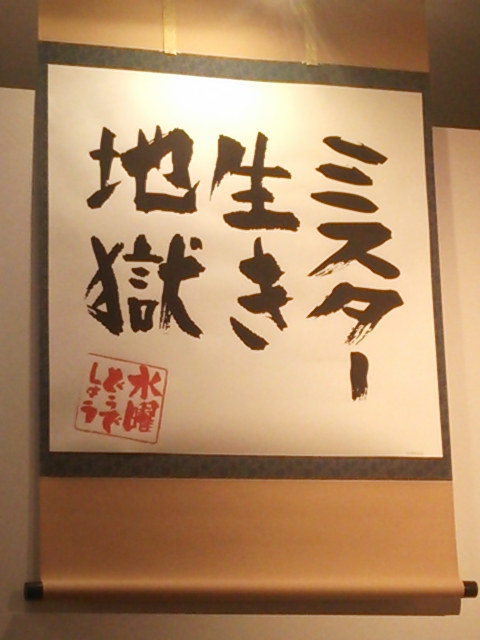 ミスター
生き
地獄
水曜
どうで
しょう